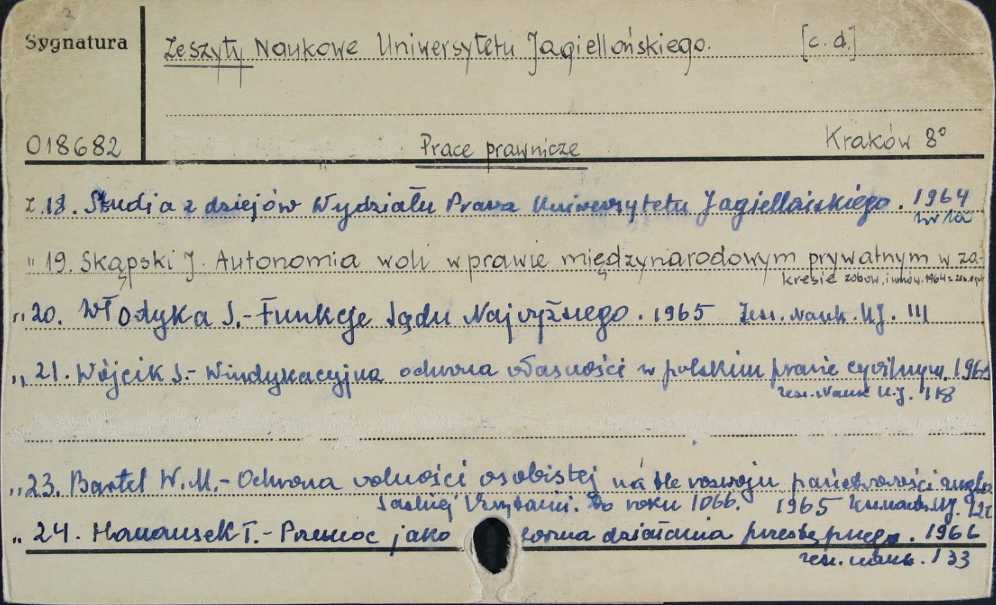 2
Sygnatura
Zeszyty Naukowe Uniwersytetu Jagiellońskiego. [c.d.]
018682
Prace prawnicze
Kraków 8°
z.18. Studia z dziejów Wydziału Prawa Uniwersytetu Jagiellońskiego. 1964
" 19. Skąpski J. Autonomia woli w prawie międzynarodowym prywatnym w za-
kresie zobow. i umów. 1964
" 20. Włodyka S. - Funkcje Sądu Najwyższego. 1965 Zesz. Nauk. UJ. 111
" 21. Wójcik S. - Windykacyjna ochrona własności w polskim prawie cywilnym. 1965
zesz. Nauk U.J. 118
" 23. Bartel W.M. - Ochrona wolności osobistej na tle rozwoju państwowości anglo
saskiej Brytanii. Do roku 1066. 1965 Zesz. nauk. UJ.
" 24. Hanausek T. - Przemoc jako forma działania przestępnego. 1966
zesz. nauk. 133